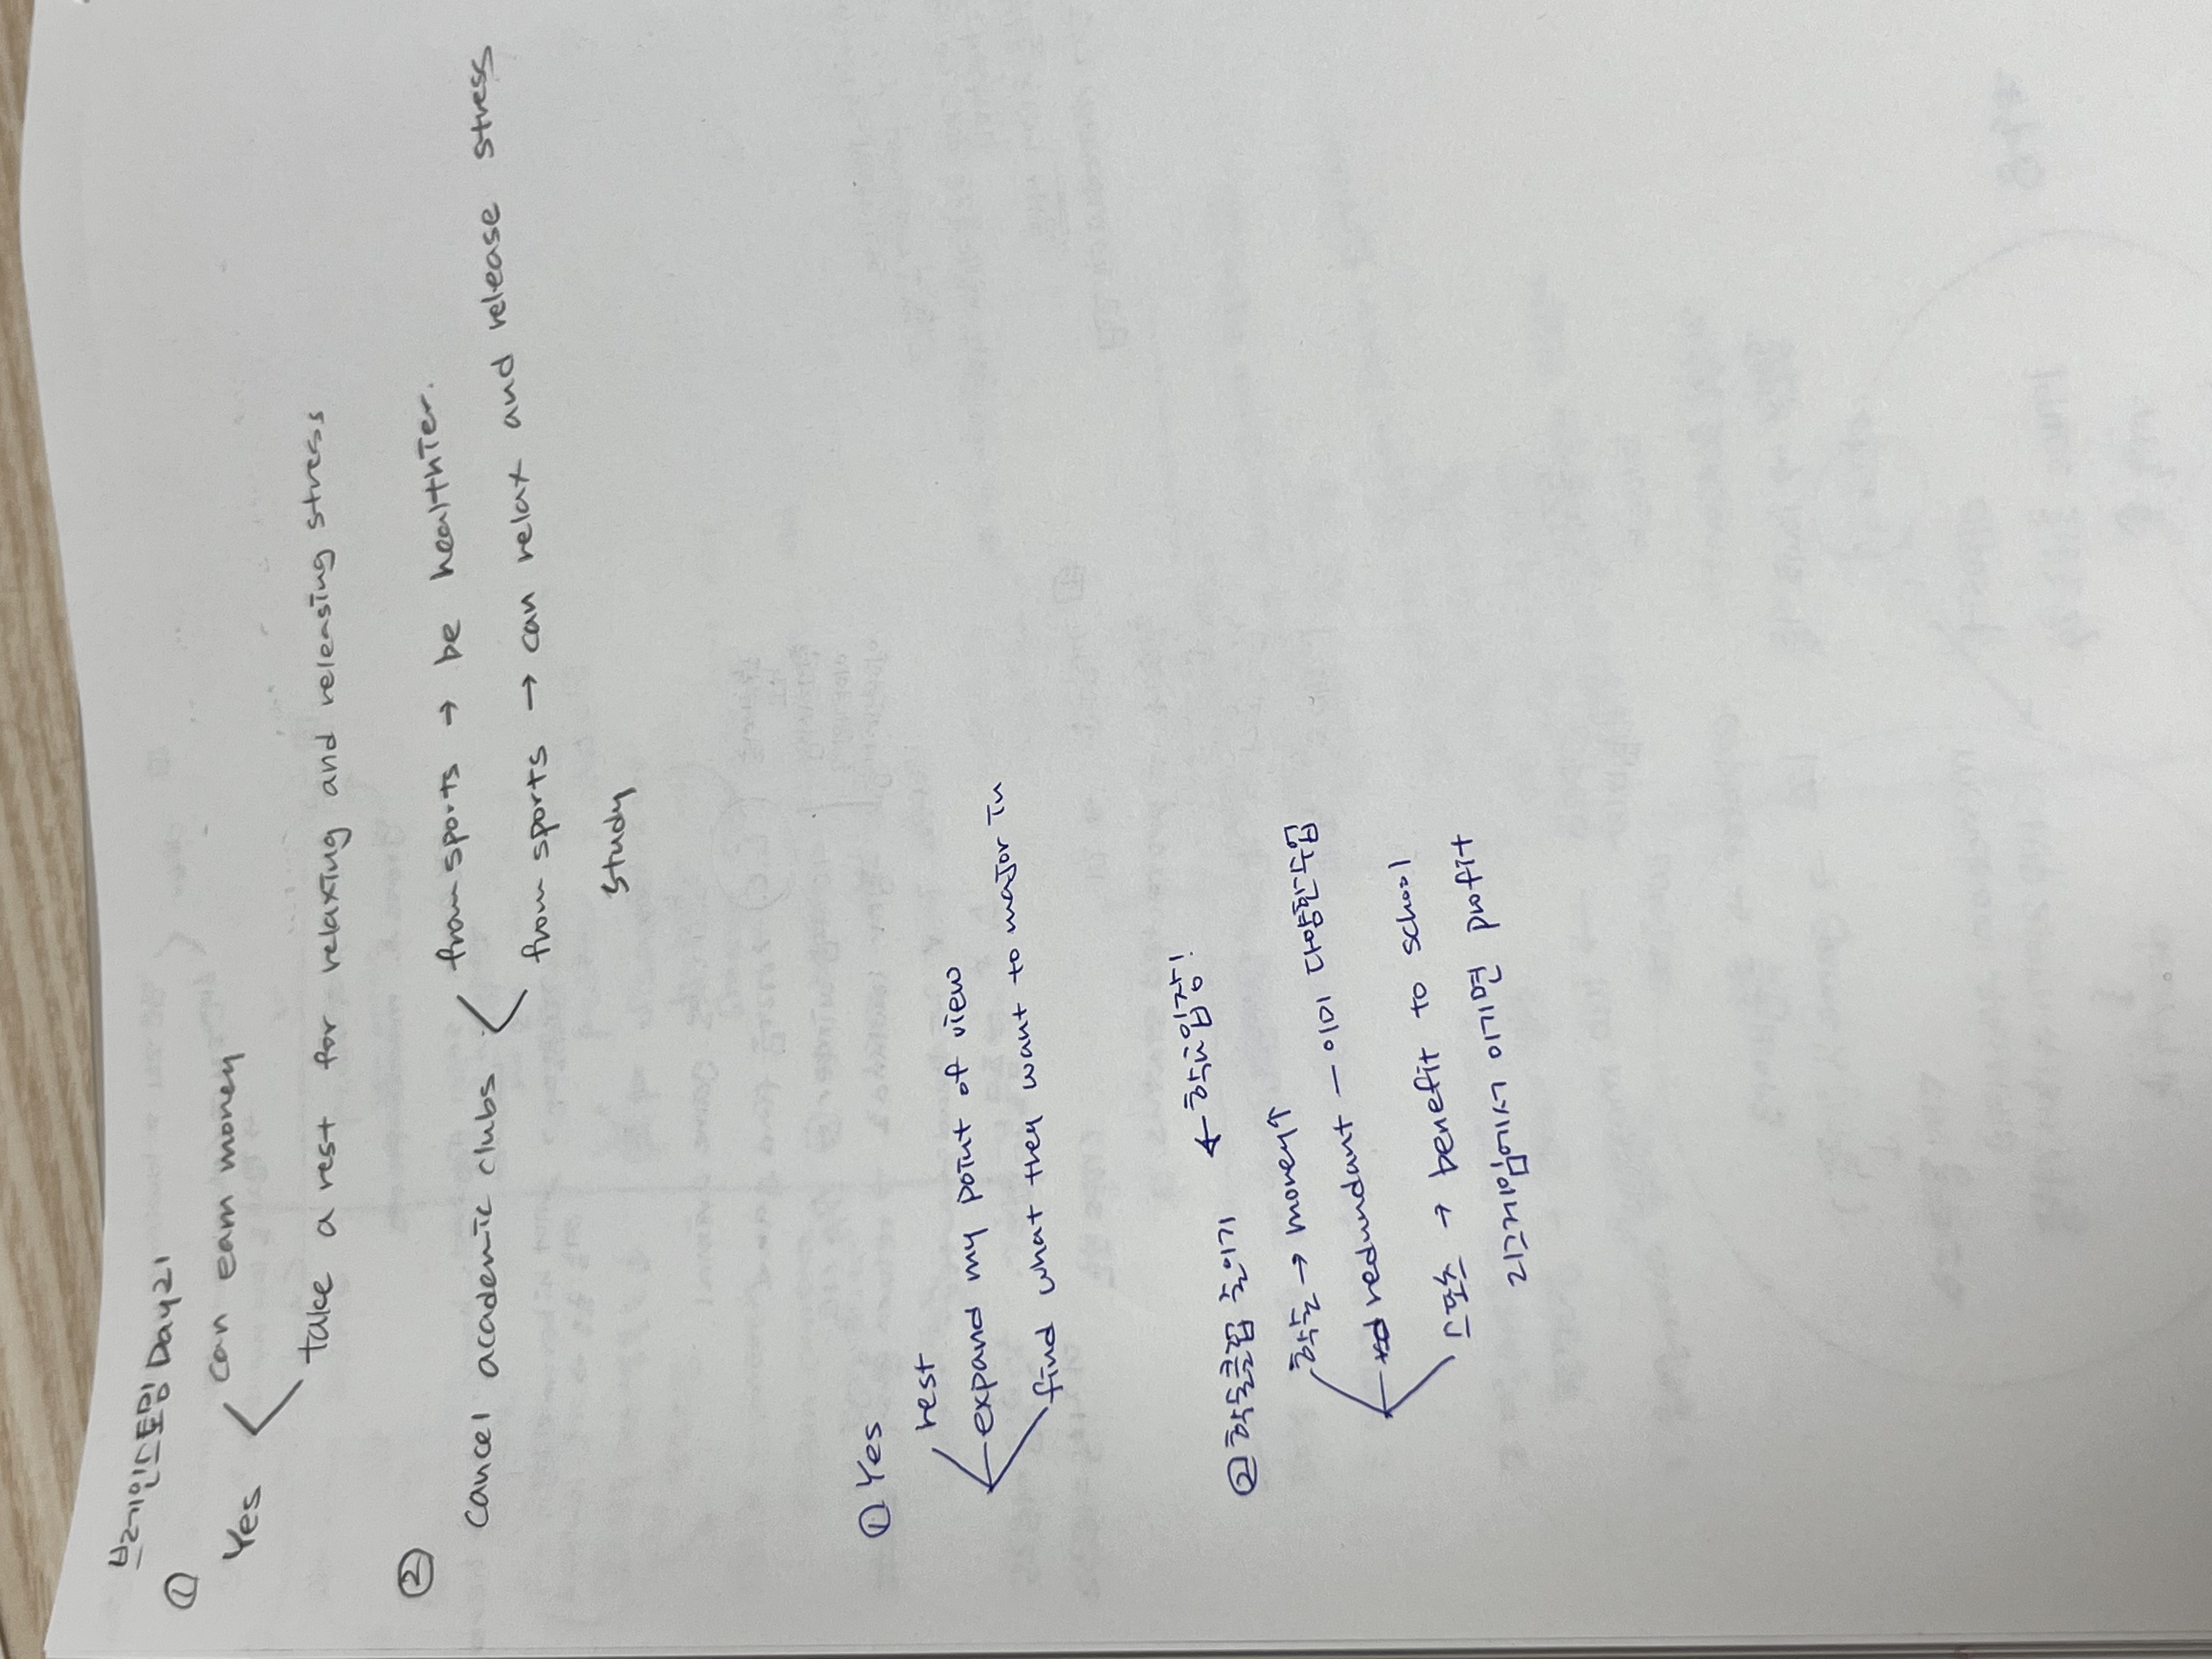 브레인스토밍 Day21
①
Yes
can earn money
take a rest for relaxing and releasing stress
②
Cancel academic clubs
from sports → be healthier.
from sports → can relax and release stress
study
① Yes
rest
expand my point of view
find what they want to major in
② 학술클럽 줄이기 ← 학교입장!
학술 → money↑
redundant - 이미 다양한수업
스포츠 → benefit to school
리그게임에서 이기면 profit